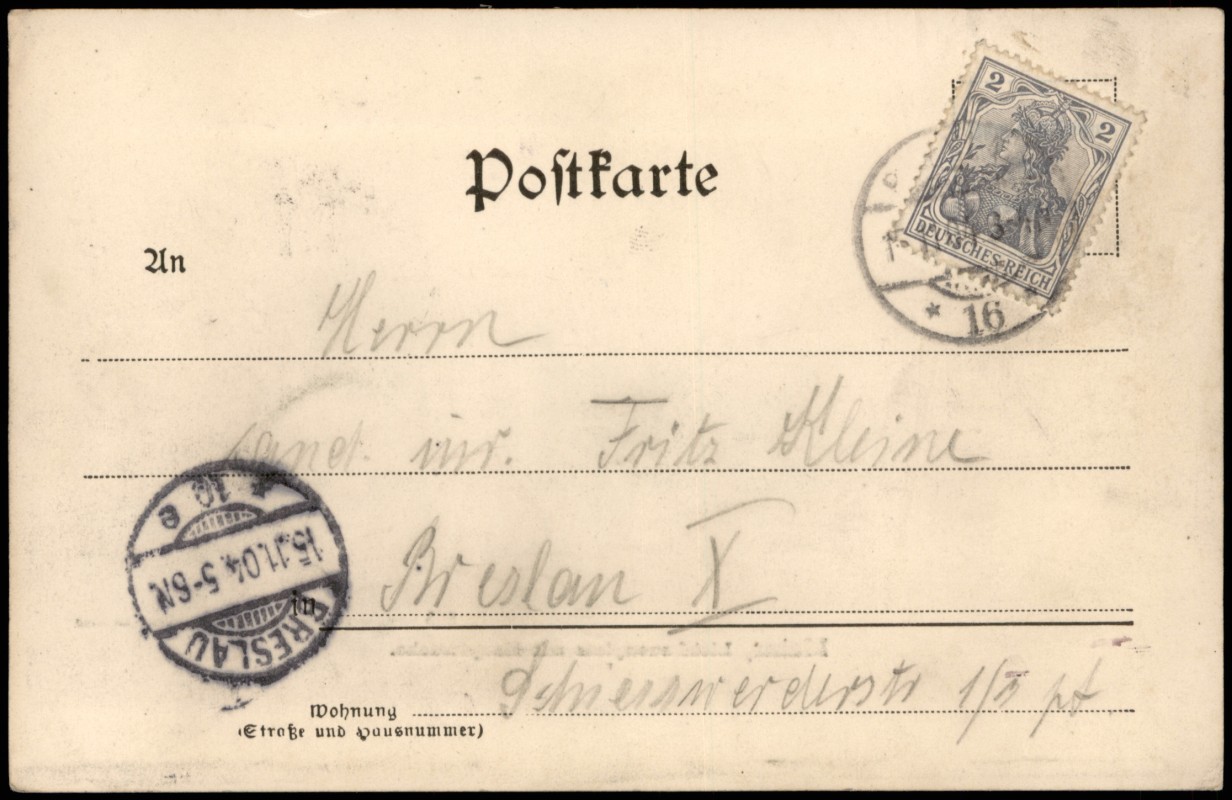 Postkarte
2 2
DEUTSCHES REICH
16
An
Herrn
cand. iur. Fritz Kleine
* 10 e
15.11.04. 5-6N.
BRESLAU
in Breslau X
Schiesswerderstr 1/3 pt.
Wohnung
(Straße und Hausnummer)